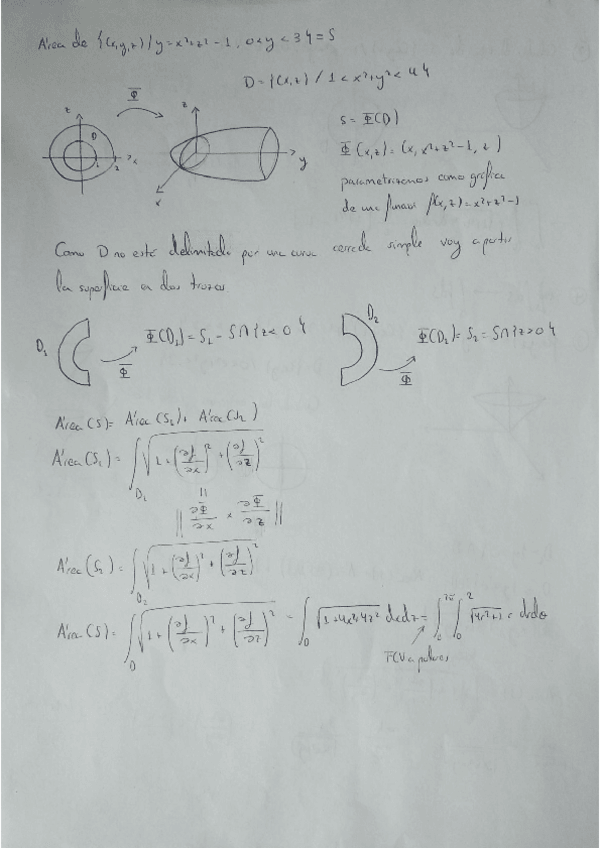 Área de {(x,y,z) / y=x²+z²-1, 0<y<3}=S
D={(x,z) / 1<x²+y²<4}
Φ
z
D
x
1
2
z
y
x
S = Φ(D)
Φ(x,z)=(x, x²+z²-1, z)
parametrizamos como gráfica
de una función f(x,z)=x²+z²-1
Como D no está delimitado por una curva cerrada simple voy a partir
la superficie en dos trozos
D₁
Φ(D₁)=S₁=S∩{z<0}
Φ
D₂
Φ(D₂)=S₂=S∩{z>0}
Φ
Área(S)= Área(S₁)+ Área(S₂)
Área(S₁)= ∫_D₁ √(1+(∂f/∂x)²+(∂f/∂z)²)
||
|| ∂Φ/∂x × ∂Φ/∂z ||
Área(S₂)= ∫_D₂ √(1+(∂f/∂x)²+(∂f/∂z)²)
Área(S)= ∫_D √(1+(∂f/∂x)²+(∂f/∂z)²) = ∫_D √(1+4x²+4z²) dxdz = ∫_0^2π ∫_0^2 √(4r²+1) r drdθ
TCV a polares